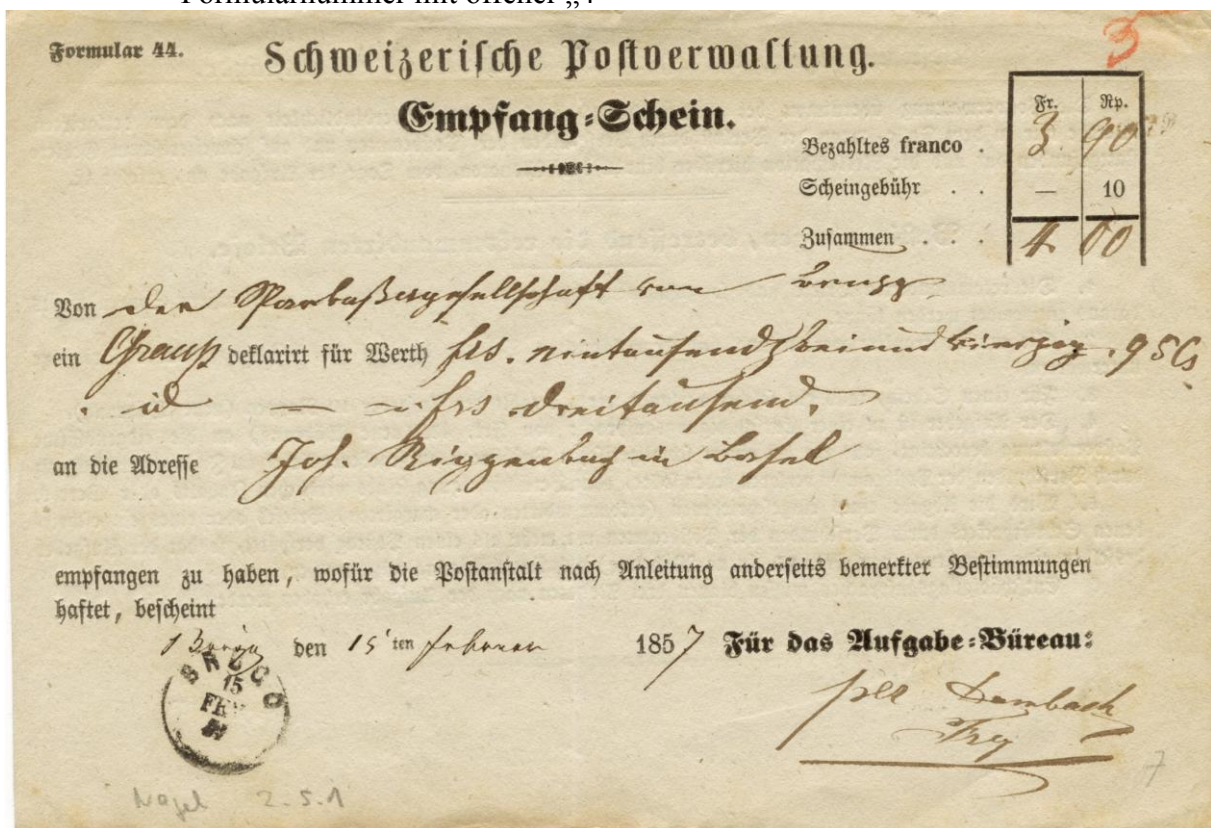 Formularnummer mit offener „4“
Formular 44.
Schweizerische Postverwaltung.
3
Empfang-Schein.
Fr. Rp.
Bezahltes franco . 3. 90
Scheingebühr . . — 10
Zusammen . . . 4 00
Von der Sparkassagesellschaft von Brugg
ein Group deklarirt für Werth frs. dreiundvierzig . 95 Cs
. id — — frs dreitausend.
an die Adresse Joh. Riggenbach in Basel
empfangen zu haben, wofür die Postanstalt nach Anleitung anderseits bemerkter Bestimmungen
haftet, bescheint
Brugg den 15 ten Februar 1857 Für das Aufgabe-Büreau:
BRUGG
15
FEB
Dambach
Frey
7
Nagel 2.5.1